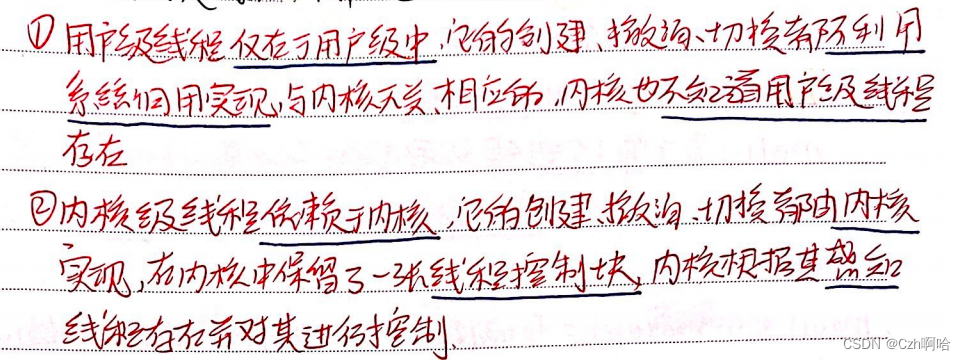 ①用户级线程仅在于用户级中,它的创建、撤消、切换都不利用
系统调用实现,与内核无关,相应的,内核也不知道用户级线程
存在
②内核级线程依赖于内核,它的创建、撤消、切换都由内核
实现,在内核中保留了一张线程控制块,内核根据其感知
线程存在并对其进行控制.
CSDN @Czh啊哈